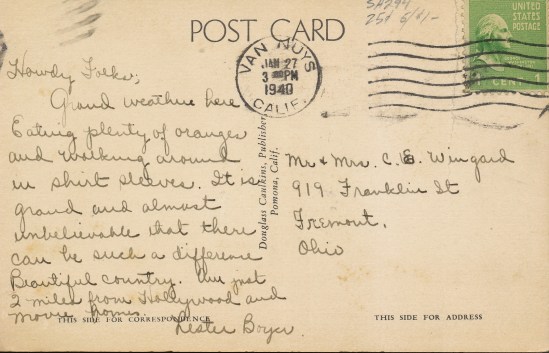 POST CARD
SA294
25¢ 5/4/-
UNITED
STATES
POSTAGE
1 CENT 1
VAN NUYS
JAN 27
3 PM
1940
CALIF.
Howdy Folks;
Grand weather here
Eating plenty of oranges
and working around
in shirt sleeves. It is
grand and almost
unbelievable that there
can be such a difference
Beautiful country. Am just
2 miles from Hollywood and
movie homes.
Lester Boyer
Douglass Caulkins, Publisher,
Pomona, Calif.
Mr & Mrs. C. E. Wingard
919 Franklin St
Fremont,
Ohio
THIS SIDE FOR CORRESPONDENCE
THIS SIDE FOR ADDRESS